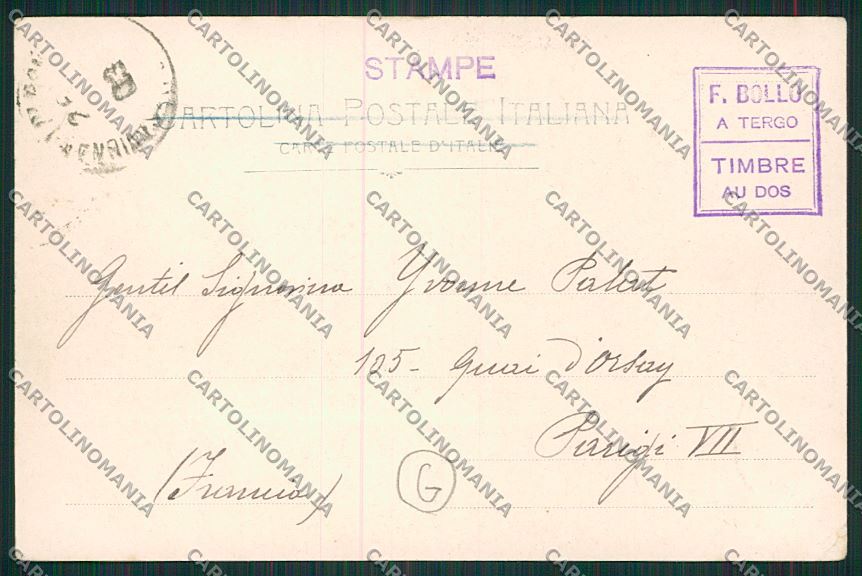 STAMPE
CARTOLINA POSTALE ITALIANA
CARTE POSTALE D'ITALIE
F. BOLLO
A TERGO
TIMBRE
AU DOS
Gentil Signorina Yvonne Palat
105 - Quai d'Orsay
Parigi VII
(Francia)
G
CARTOLINOMANIA